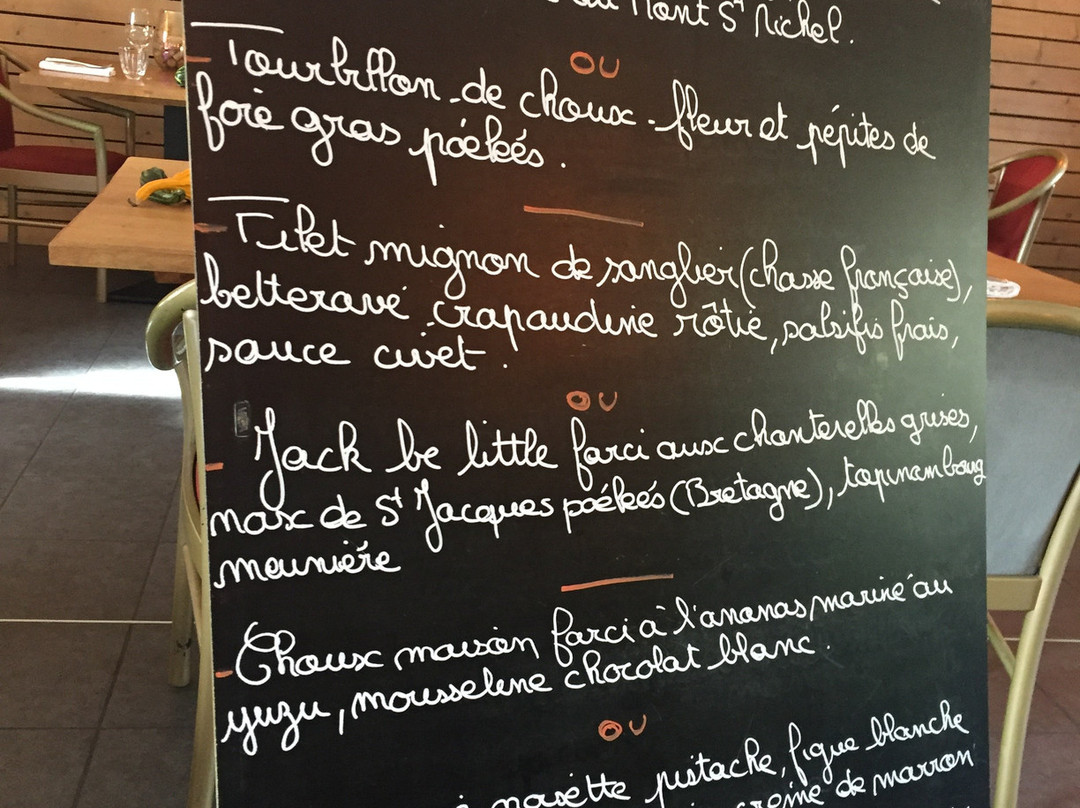 du Mont St Michel.
OU
- Tourbillon de choux-fleur et pépites de
foie gras poêlés.
- Filet mignon de sanglier (chasse française),
betterave crapaudine rôtie, salsifis frais,
sauce civet.
OU
- Jack be little farci aux chanterelles grises,
noix de St Jacques poêlées (Bretagne), topinambour
meunière
- Choux maison farci à l'ananas mariné au
yuzu, mousseline chocolat blanc.
OU
noisette pistache, figue blanche
crème de marron